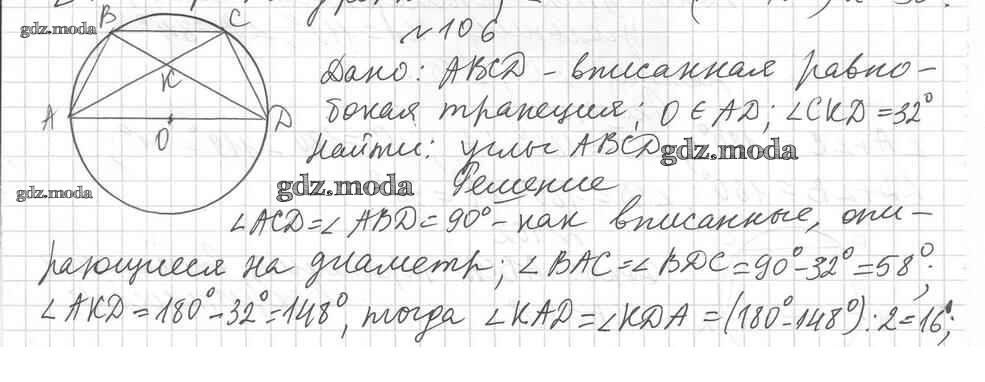 gdz.moda
B C
№106
K
Дано: ABCD – вписанная равно-
A D
O
бокая трапеция; O ∈ AD; ∠CKD = 32°
Найти: углы ABCD
gdz.moda
gdz.moda
gdz.moda
Решение
∠ACD = ∠ABD = 90° – как вписанные, опи-
рающиеся на диаметр; ∠BAC = ∠BDC = 90° – 32° = 58°;
∠AKD = 180° – 32° = 148°, тогда ∠KAD = ∠KDA = (180° – 148°) : 2 = 16°;